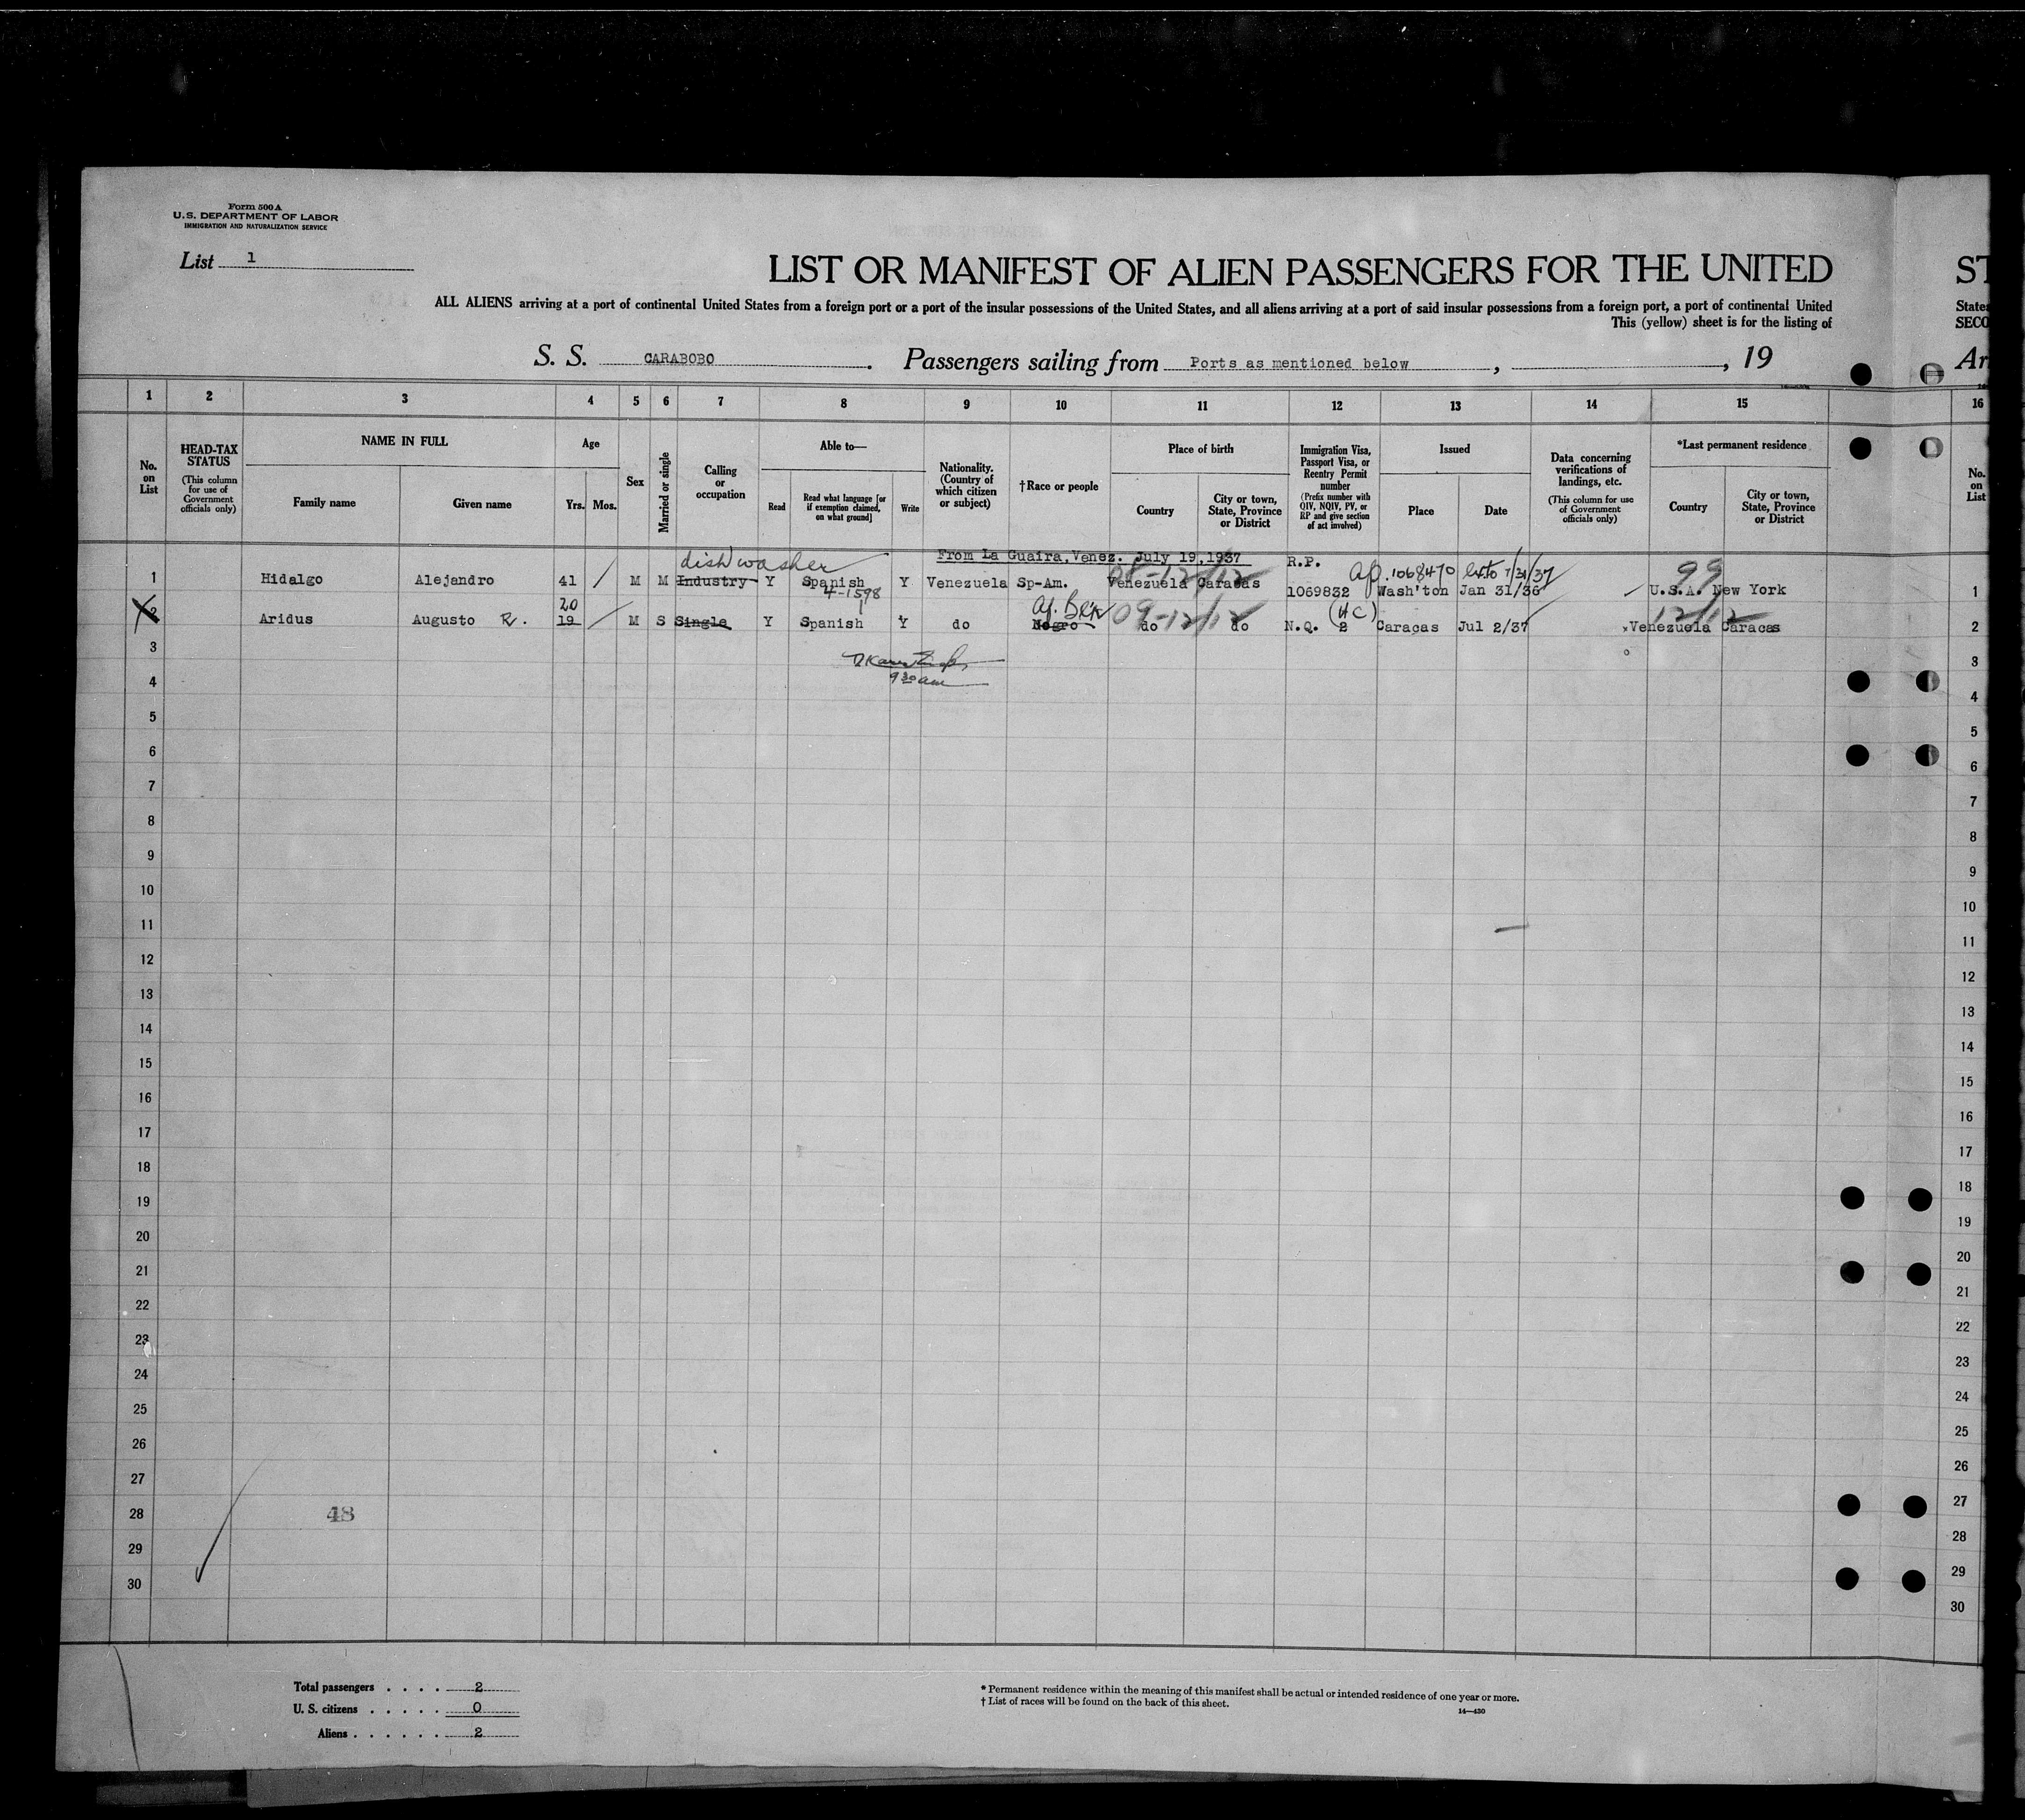 Form 500 A
U.S. DEPARTMENT OF LABOR
IMMIGRATION AND NATURALIZATION SERVICE
List 1
LIST OR MANIFEST OF ALIEN PASSENGERS FOR THE UNITED ST
ALL ALIENS arriving at a port of continental United States from a foreign port or a port of the insular possessions of the United States, and all aliens arriving at a port of said insular possessions from a foreign port, a port of continental United States
This (yellow) sheet is for the listing of SECO
S. S. CARABOBO. Passengers sailing from Ports as mentioned below, , 19 Ar
1 2 3 4 5 6 7 8 9 10 11 12 13 14 15 16
No. on List
HEAD-TAX STATUS
(This column for use of Government officials only)
NAME IN FULL
Family name
Given name
Age
Yrs.
Mos.
Sex
Married or single
Calling or occupation
Able to—
Read
Read what language [or if exemption claimed, on what ground]
Write
Nationality. (Country of which citizen or subject)
†Race or people
Place of birth
Country
City or town, State, Province or District
Immigration Visa, Passport Visa, or Reentry Permit number
(Prefix number with QIV, NQIV, PV, or RP and give section of act involved)
Issued
Place
Date
Data concerning verifications of landings, etc.
(This column for use of Government officials only)
*Last permanent residence
Country
City or town, State, Province or District
No. on List
From La Guaira, Venez. July 19, 1937
dishwasher R.P. 1068470 7/31/37 99
1 Hidalgo Alejandro 41 M M Industry Y Spanish Y Venezuela Sp-Am. Venezuela Caracas 1069832 Wash'ton Jan 31/36 U.S.A. New York 1
4-1598
20 (HC) 12/12
2 Aridus Augusto R. 19 M S Single Y Spanish Y do Negro do do N.Q. 2 Caracas Jul 2/37 Venezuela Caracas 2
09-12/12
3 3
9 30 am
4 4
5 5
6 6
7 7
8 8
9 9
10 10
11 11
12 12
13 13
14 14
15 15
16 16
17 17
18 18
19 19
20 20
21 21
22 22
23 23
24 24
25 25
26 26
27 27
28 48 28
29 29
30 30
Total passengers . . . . 2
U. S. citizens . . . . . 0
Aliens . . . . . . 2
* Permanent residence within the meaning of this manifest shall be actual or intended residence of one year or more.
† List of races will be found on the back of this sheet.
14—430